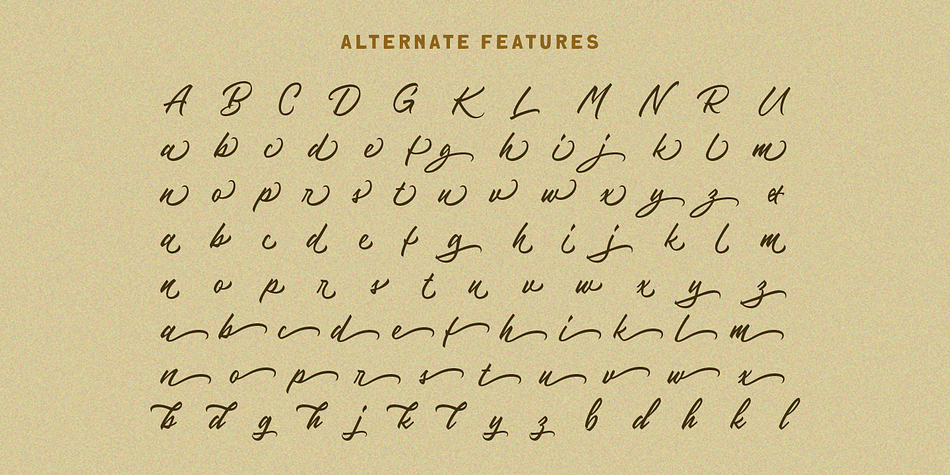 ALTERNATE FEATURES
A B C D G K L M N R U
a b c d e f g h i j k l m
n o p r s t u v w x y z &
a b c d e f g h i j k l m
n o p r s t u v w x y z
a b c d e f h i k l m
n o p r s t u v w x
b d g h j k l y z b d h k l